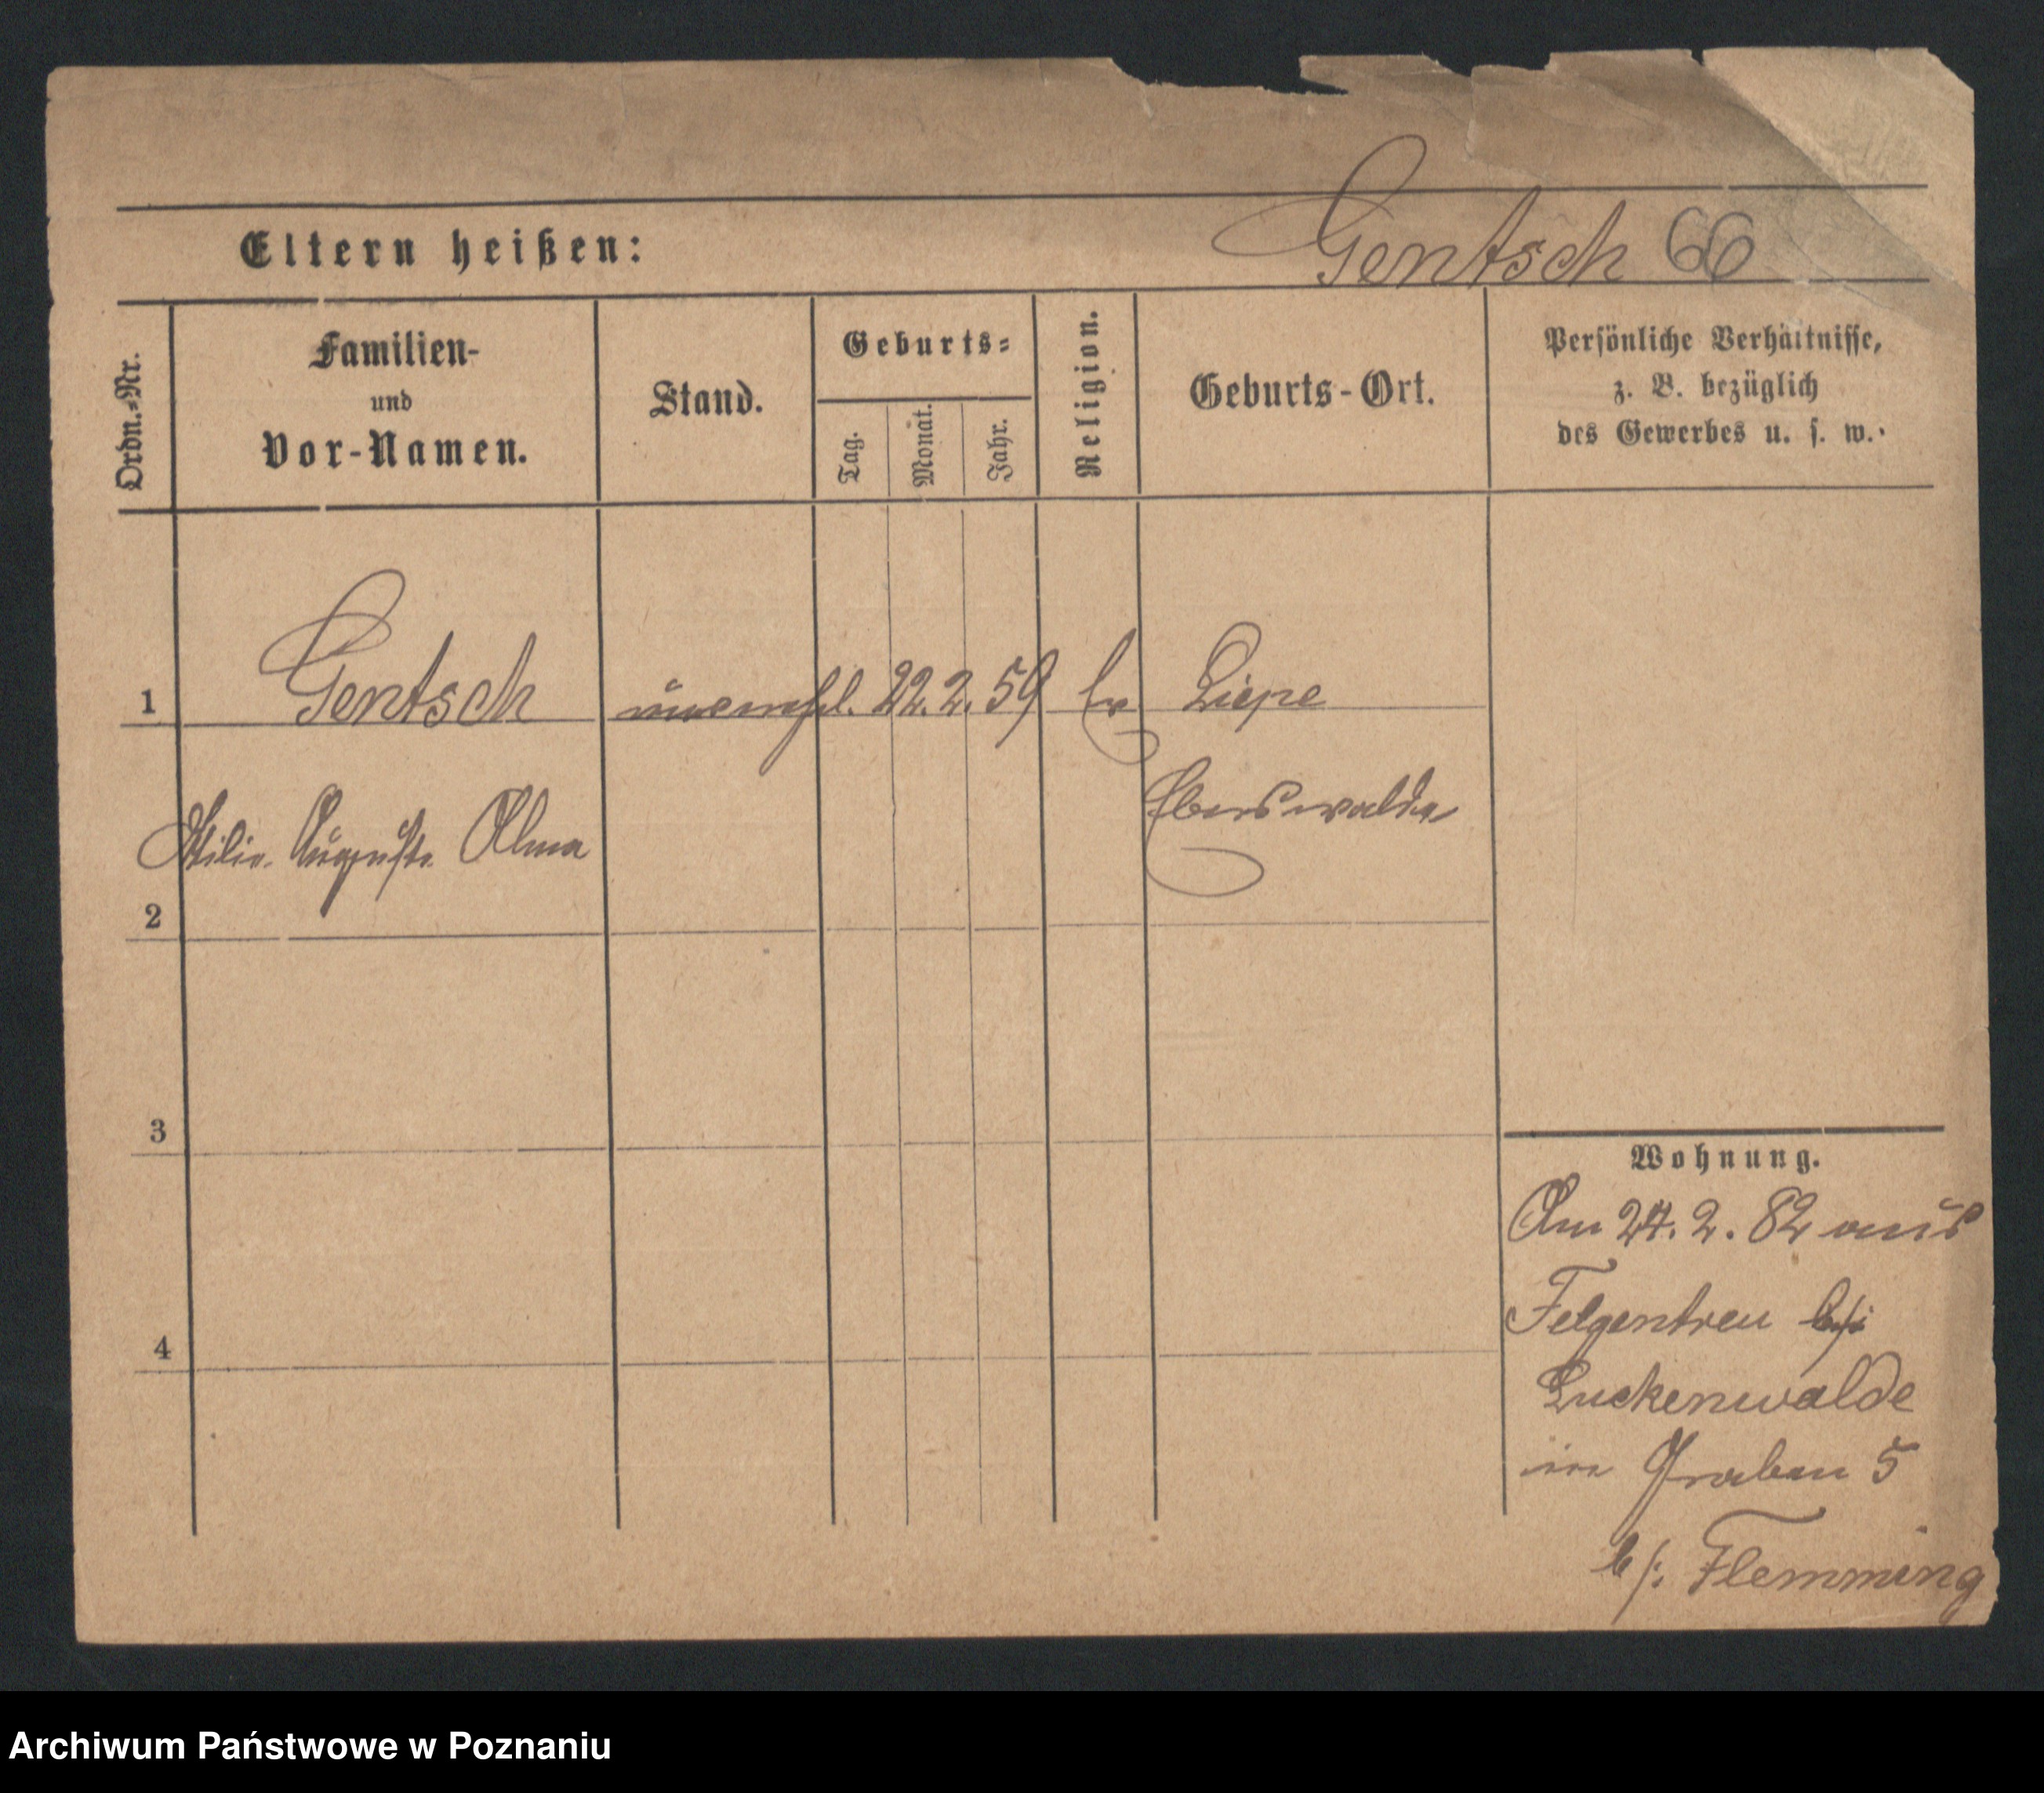 Gentsch 66
Eltern heißen:
Ordn.-Nr.
Familien-
und
Vor-Namen.
Stand.
Geburts-
Tag.
Monat.
Jahr.
Religion.
Geburts-Ort.
Persönliche Verhältnisse,
z. B. bezüglich
des Gewerbes u. s. w.
1 Gentsch unverehl. 22. 2. 59 Ev Liepe
Eberswalde
Ottilie Auguste Alma
2
3
4
Wohnung.
Am 24. 2. 82 aus
Felgentreu bei
Luckenwalde
Graben 5
b/: Flemming
Archiwum Państwowe w Poznaniu